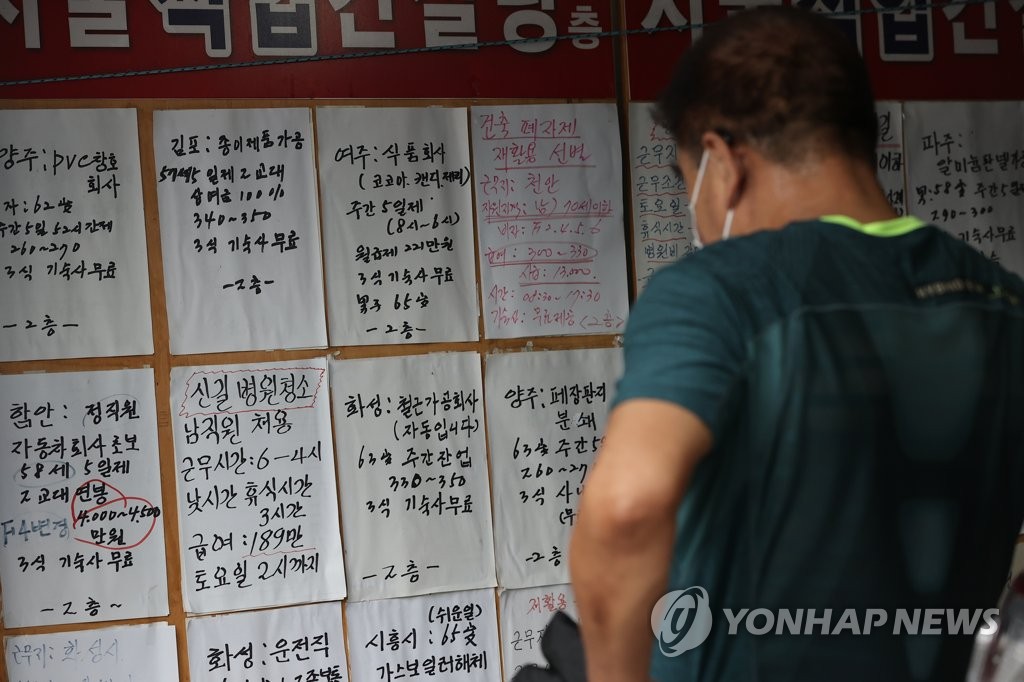 양주: PVC창호
회사
자: 62세
주간5일 62시간제
260~270
3식 기숙사무료
-2층-
김포: 종이제품가공
57세 5일제 2교대
상여금 100%
340~350
3식 기숙사 무료
-2층-
여주: 식품회사
(코코아. 캔식 제리)
주간 5일제
(8시~6시)
월급제 221만원
3식 기숙사무료
男子 65歲
-2층-
건축 폐자제
재활용 선별
근무지: 천안
자원자격: 남) 70세이하
비자: F2.4.5.6
급여: 300~330
시급: 13,000
시간: 08:30~17:30
기숙사: 무료제공 <2층>
근무
토요일
휴식시간
병원비
파주:
알미늄판넬
男:58歲 주간5
290~300
3식 기숙사무료
함안: 정직원
자동차회사초보
58세 5일제
2교대 연봉
4,000~4,500
만원
F4변경
3식 기숙사 무료
-2층~
신길 병원청소
남직원 채용
근무시간: 6-4시
낮시간 휴식시간
3시간
급여: 189만
토요일 2시까지
화성: 철근가공회사
(자동입니다)
63歲 주간잔업
330~350
3식 기숙사무료
-2층-
양주: 폐장판격
분쇄
63歲 주간5
260~27
3식
-2층
근무지: 화성시
화성: 운전직
(쉬운일)
시흥시: 65歲
가스보일러해체
재활용
근무
YONHAP NEWS